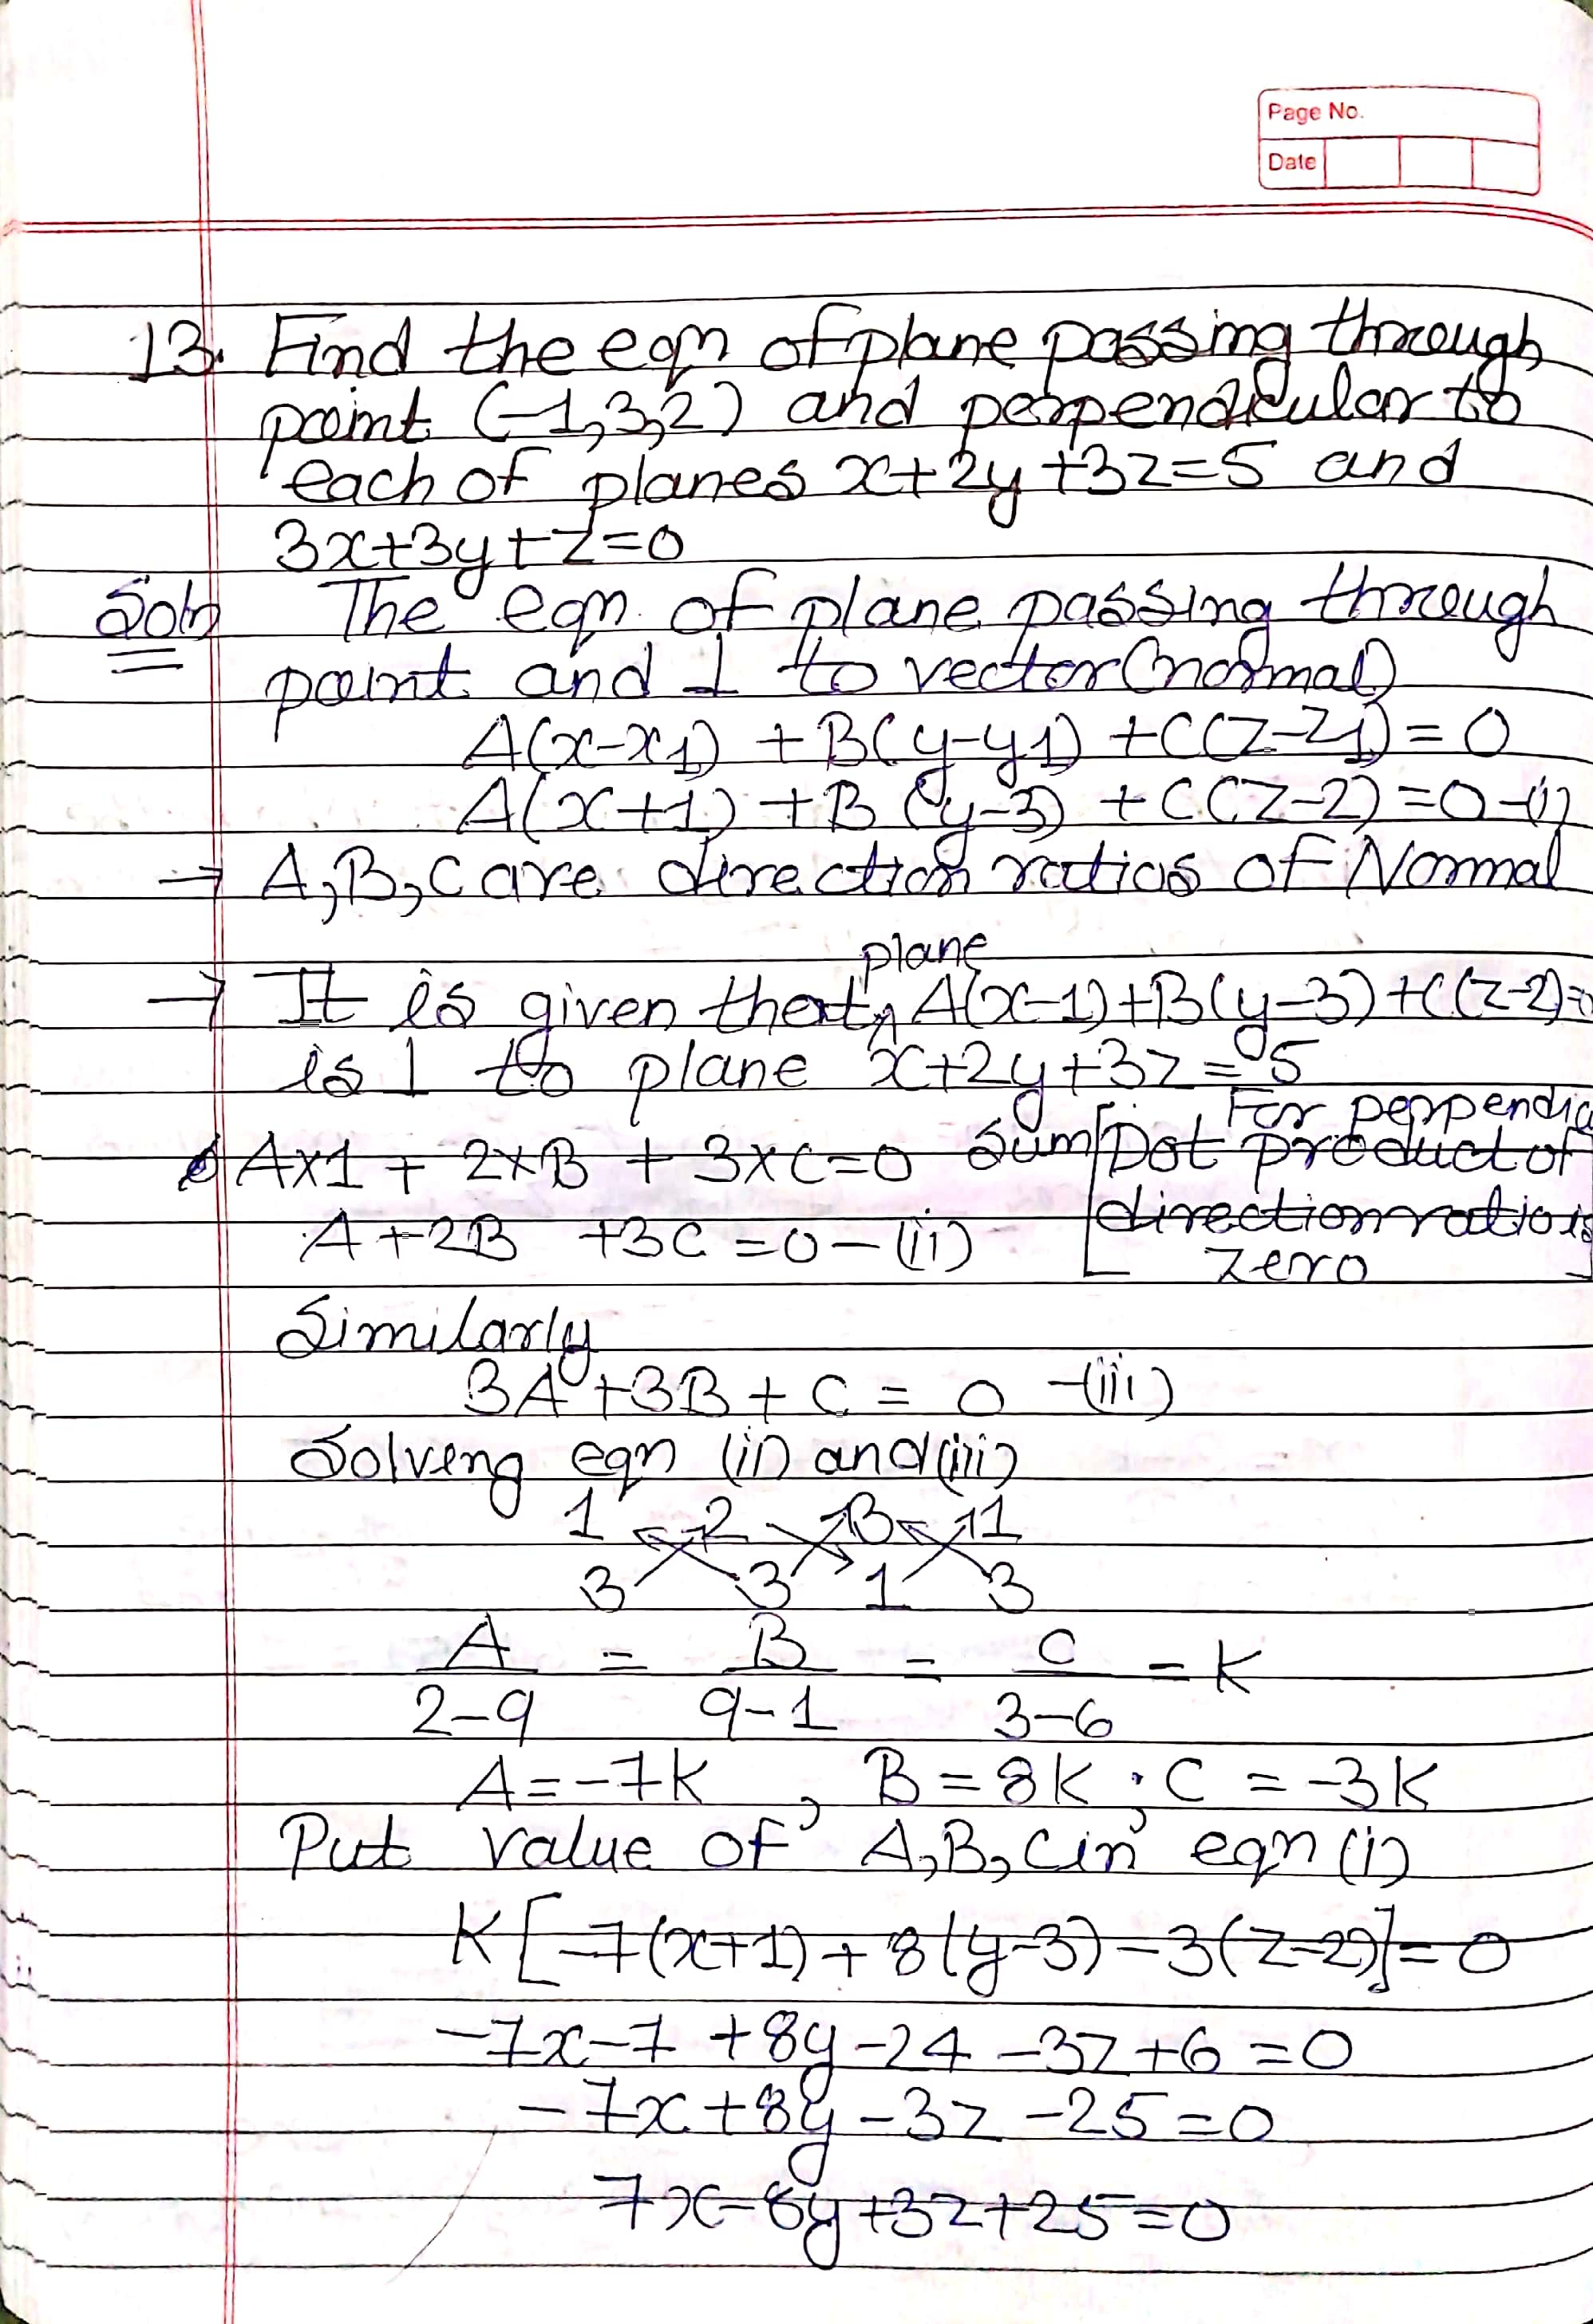 Page No.
Date
13. Find the eqn of plane passing through
point (-1,3,2) and perpendicular to
each of planes x+2y+3z=5 and
3x+3y+z=0
Soln The eqn. of plane passing through
point and ⊥ to vector (normal)
A(x-x1) + B(y-y1) + C(z-z1) = 0
A(x+1) + B(y-3) + C(z-2) = 0 -(i)
→ A,B,C are direction ratios of Normal
plane
→ It is given that ^ A(x-1)+B(y-3)+C(z-2)=0
is ⊥ to plane x+2y+3z=5
For perpendic
A×1 + 2×B + 3×C=0 Sum [Dot product of
A+2B +3C =0 - (ii) direction ratio is
zero]
Similarly
3A+3B+C = 0 -(iii)
Solving eqn (ii) and (iii)
1 2 3 1
3 3 1 3
A/2-9 = B/9-1 = C/3-6 = K
A=-7K , B=8K , C=-3K
Put value of A,B,C in eqn (i)
K[-7(x+1)+8(y-3)-3(z-2)]=0
-7x-7+8y-24-3z+6=0
-7x+8y-3z-25=0
7x-8y+3z+25=0